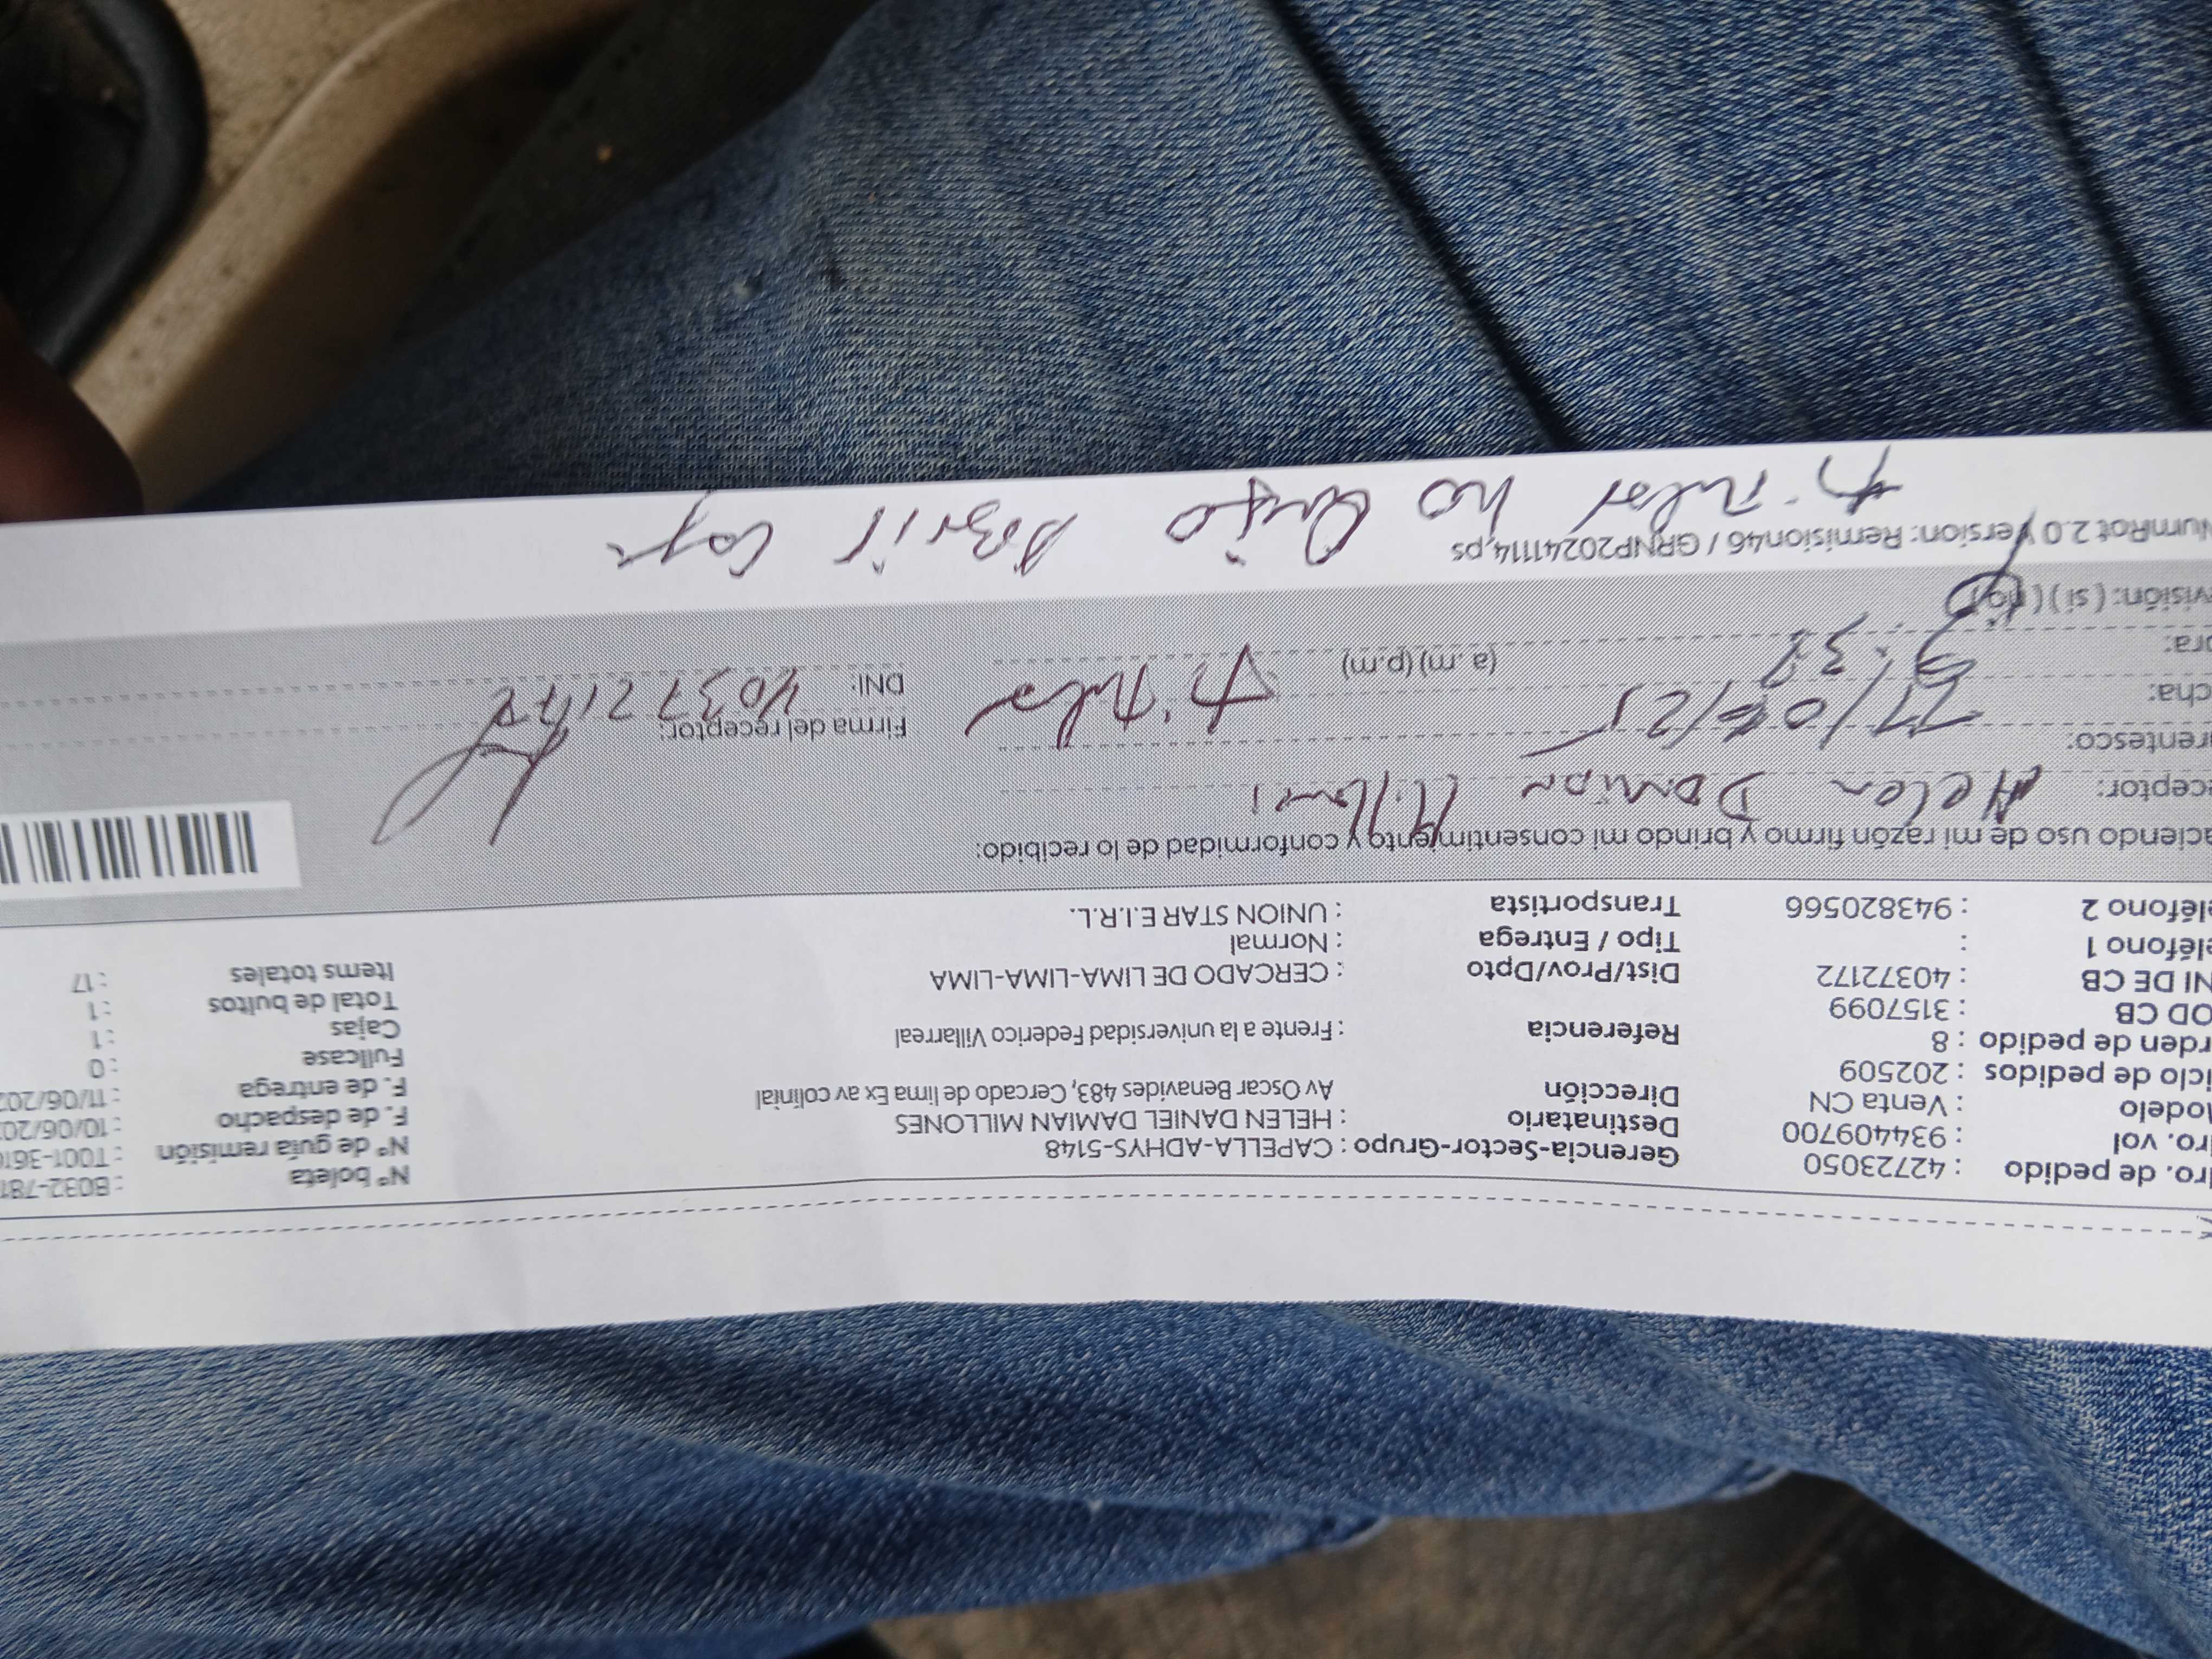 Nro. de pedido : 42723050 Gerencia-Sector-Grupo : CAPELLA-ADHYS-5148 N° boleta : B032-781
Nro. vol : 934409700 Destinatario : HELEN DANIEL DAMIAN MILLONES N° de guía remisión : T001-3616
Modelo : Venta CN Dirección Av Oscar Benavides 483, Cercado de lima Ex av colinial F. de despacho : 10/06/202
Ciclo de pedidos : 202509 F. de entrega : 11/06/202
Orden de pedido : 8 Referencia : Frente a la universidad Federico Villarreal Fullcase : 0
COD CB : 3157099 Cajas : 1
DNI DE CB : 40372172 Dist/Prov/Dpto : CERCADO DE LIMA-LIMA-LIMA Total de bultos : 1
Teléfono 1 : Tipo / Entrega : Normal Items totales : 17
Teléfono 2 : 943820566 Transportista : UNION STAR E.I.R.L.
aciendo uso de mi razón firmo y brindo mi consentimiento y conformidad de lo recibido:
ceptor: Helen Damian Millones
rentesco: Titular Firma del receptor:
cha: 11/06/25 DNI: 40372172
ora: 9:38 (a. m) (p.m)
visión: ( si ) ( no )
NumRot 2.0 Version: Remision46 / GRNP20241114.ps
Titular no quiso abrir caja